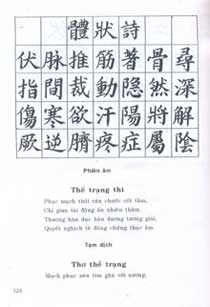 體狀詩
伏脉推筋著骨尋
指間裁動隐然深
傷寒欲汗陽將解
厥逆臍疼症屬陰
Phiên âm
Thể trạng thi
Phục mạch thôi cân chước cốt tầm,
Chỉ gian tài động ẩn nhiên thâm.
Thương hàn dục hãn dương tương giải,
Quyết nghịch tề đông chứng thuộc âm
Tạm dịch
Thơ thể trạng
Mạch phục nên tìm gân với xương,
324